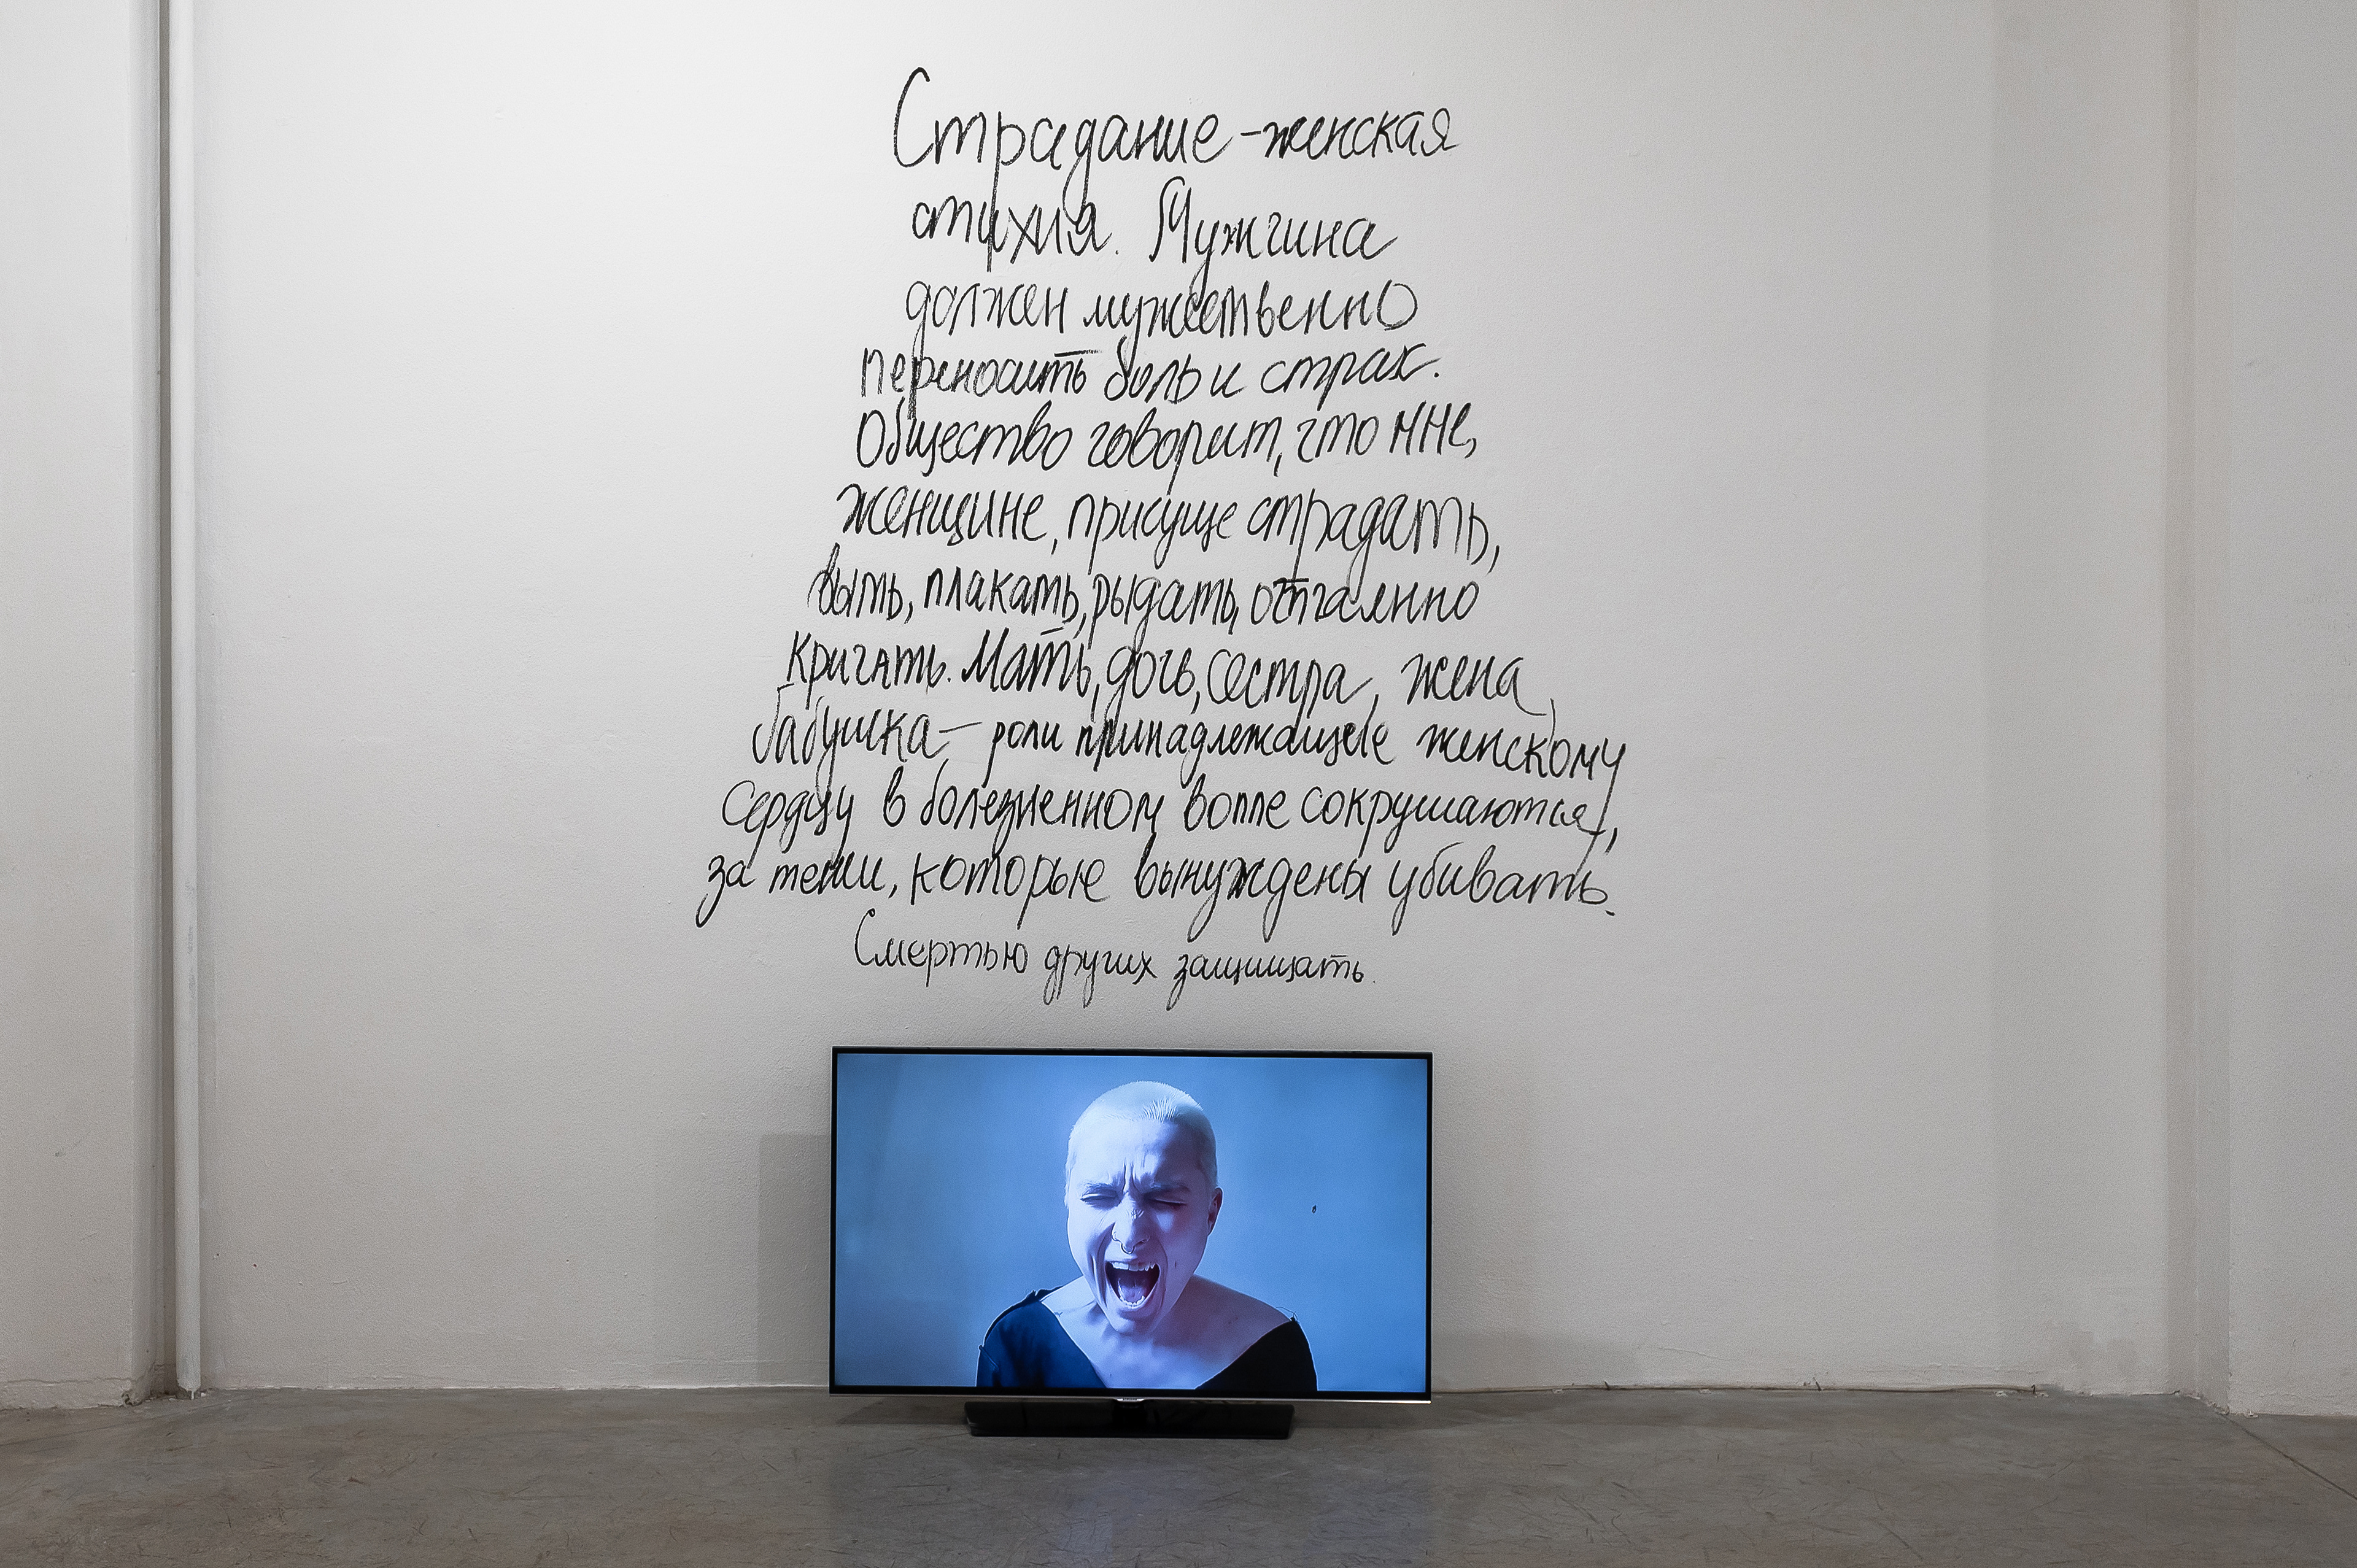 Страдание - женская
стихия. Мужчина
должен мужественно
переносить боль и страх.
Общество говорит, что мне,
женщине, присуще страдать,
выть, плакать, рыдать, отчаянно
кричать. Мать, дочь, сестра, жена,
бабушка - роли принадлежащие женскому
сердцу в болезненном вопле сокрушаются,
за теми, которые вынуждены убивать.
Смертью других защищать.